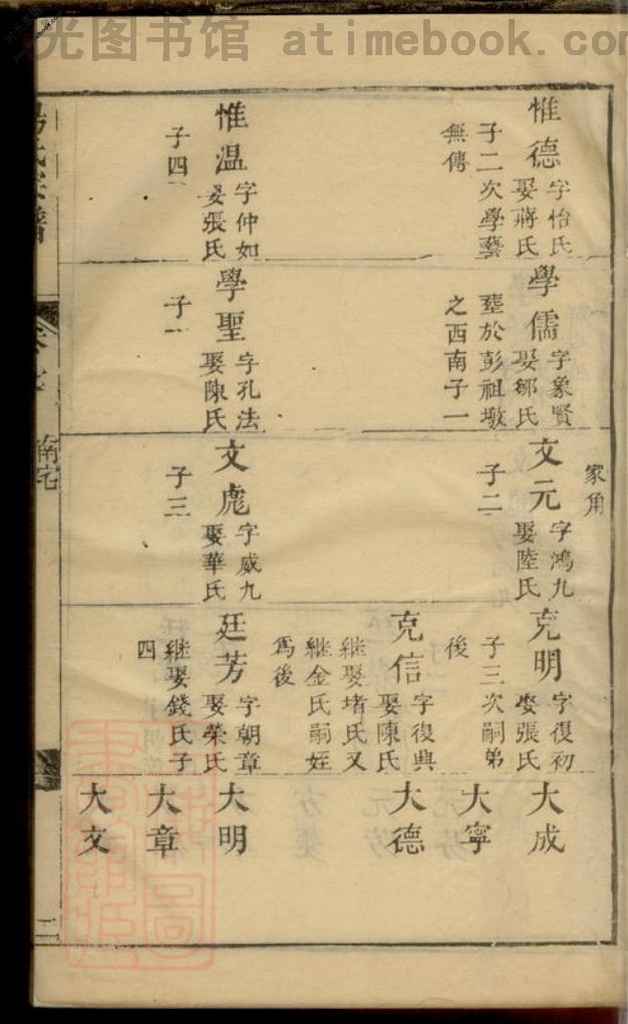 光图书馆 atimebook.com
家角
惟德
字怡氏
娶蔣氏
子二次學藝
無傳
惟温
字仲如
娶張氏
子四
學儒
字象賢
娶鄒氏
塟於彭祖墩
之西南子一
學聖
字孔法
娶陳氏
子一
文元
字鴻九
娶陸氏
子二
文彪
字威九
娶華氏
子三
克明
字復初
娶張氏
子三次嗣弟
後
克信
字復典
娶陳氏
継娶堵氏又
継金氏嗣姪
爲後
廷芳
字朝章
娶榮氏
継娶錢氏子
四
大成
大寧
大德
大明
大章
大文
南宅
二